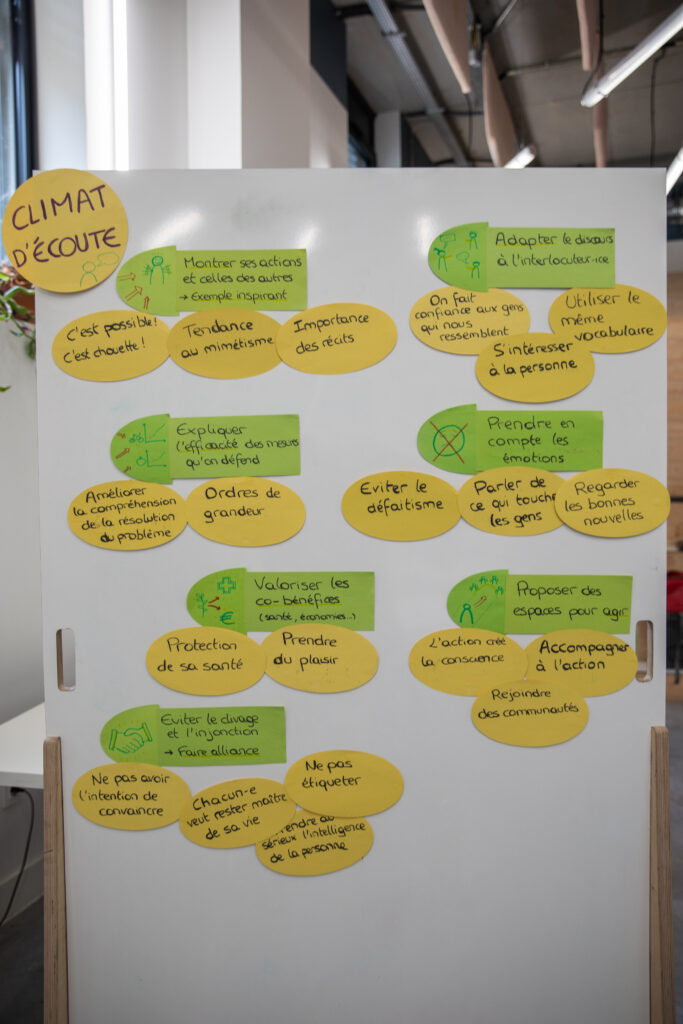 CLIMAT
D'ÉCOUTE
Montrer ses actions
et celles des autres
→ Exemple inspirant
C'est possible!
c'est chouette!
Tendance
au mimétisme
Importance
des récits
Adapter le discours
à l'interlocuteur·ice
On fait
confiance aux gens
qui nous
ressemblent
Utiliser le
même
vocabulaire
S'intéresser
à la personne
Expliquer
l'efficacité des mesures
qu'on défend
Améliorer
la compréhension
de la résolution
du problème
Ordres de
grandeur
Prendre en
compte les
émotions
Eviter le
défaitisme
Parler de
ce qui touche
les gens
Regarder
les bonnes
nouvelles
Valoriser les
co-bénéfices
(santé, économies...)
€
Protection
de sa santé
Prendre
du plaisir
Proposer des
espaces pour agir
L'action crée
la conscience
Accompagner
à l'action
Rejoindre
des communautés
Eviter le clivage
et l'injonction
→ Faire alliance
Ne pas avoir
l'intention de
convaincre
Chacun-e
veut rester maître
de sa vie
Ne pas
étiqueter
Prendre au
sérieux l'intelligence
de la personne